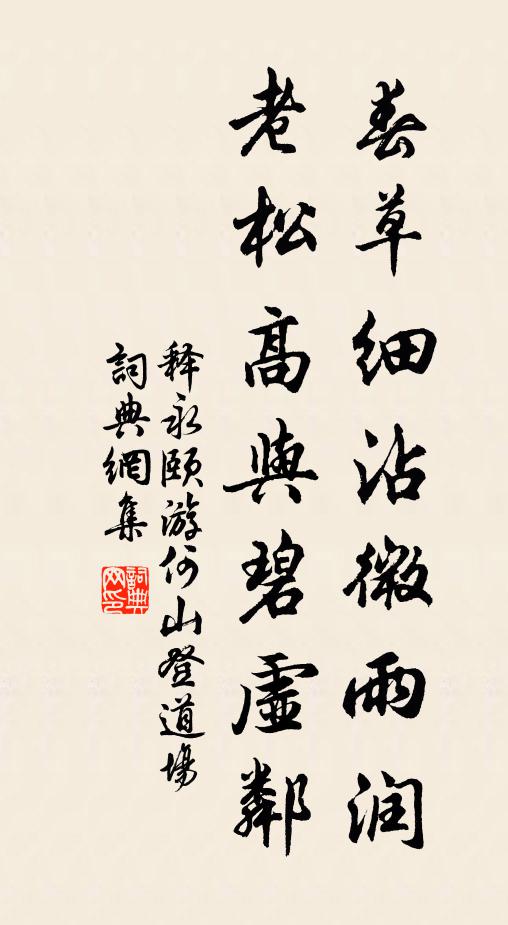 春草细沾微雨润
老松高與碧虛鄰
释永颐游何山登道場
詞典網集
詞典網印